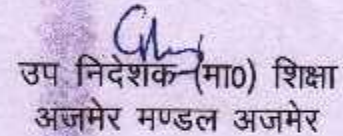 उप निदेशक (मा0) शिक्षा
अजमेर मण्डल अजमेर